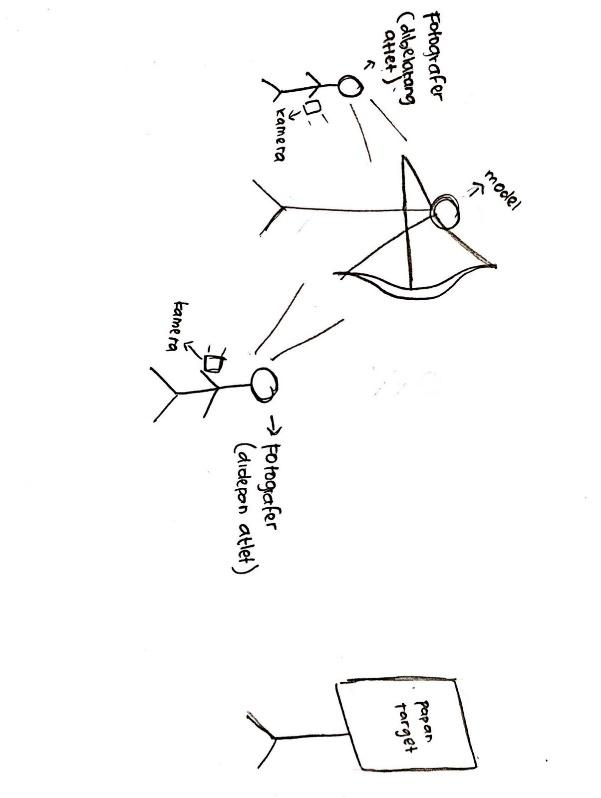 Fotografer
(dibelakang
atlet)
kamera
model
kamera
Fotografer
(didepan atlet)
papan
target